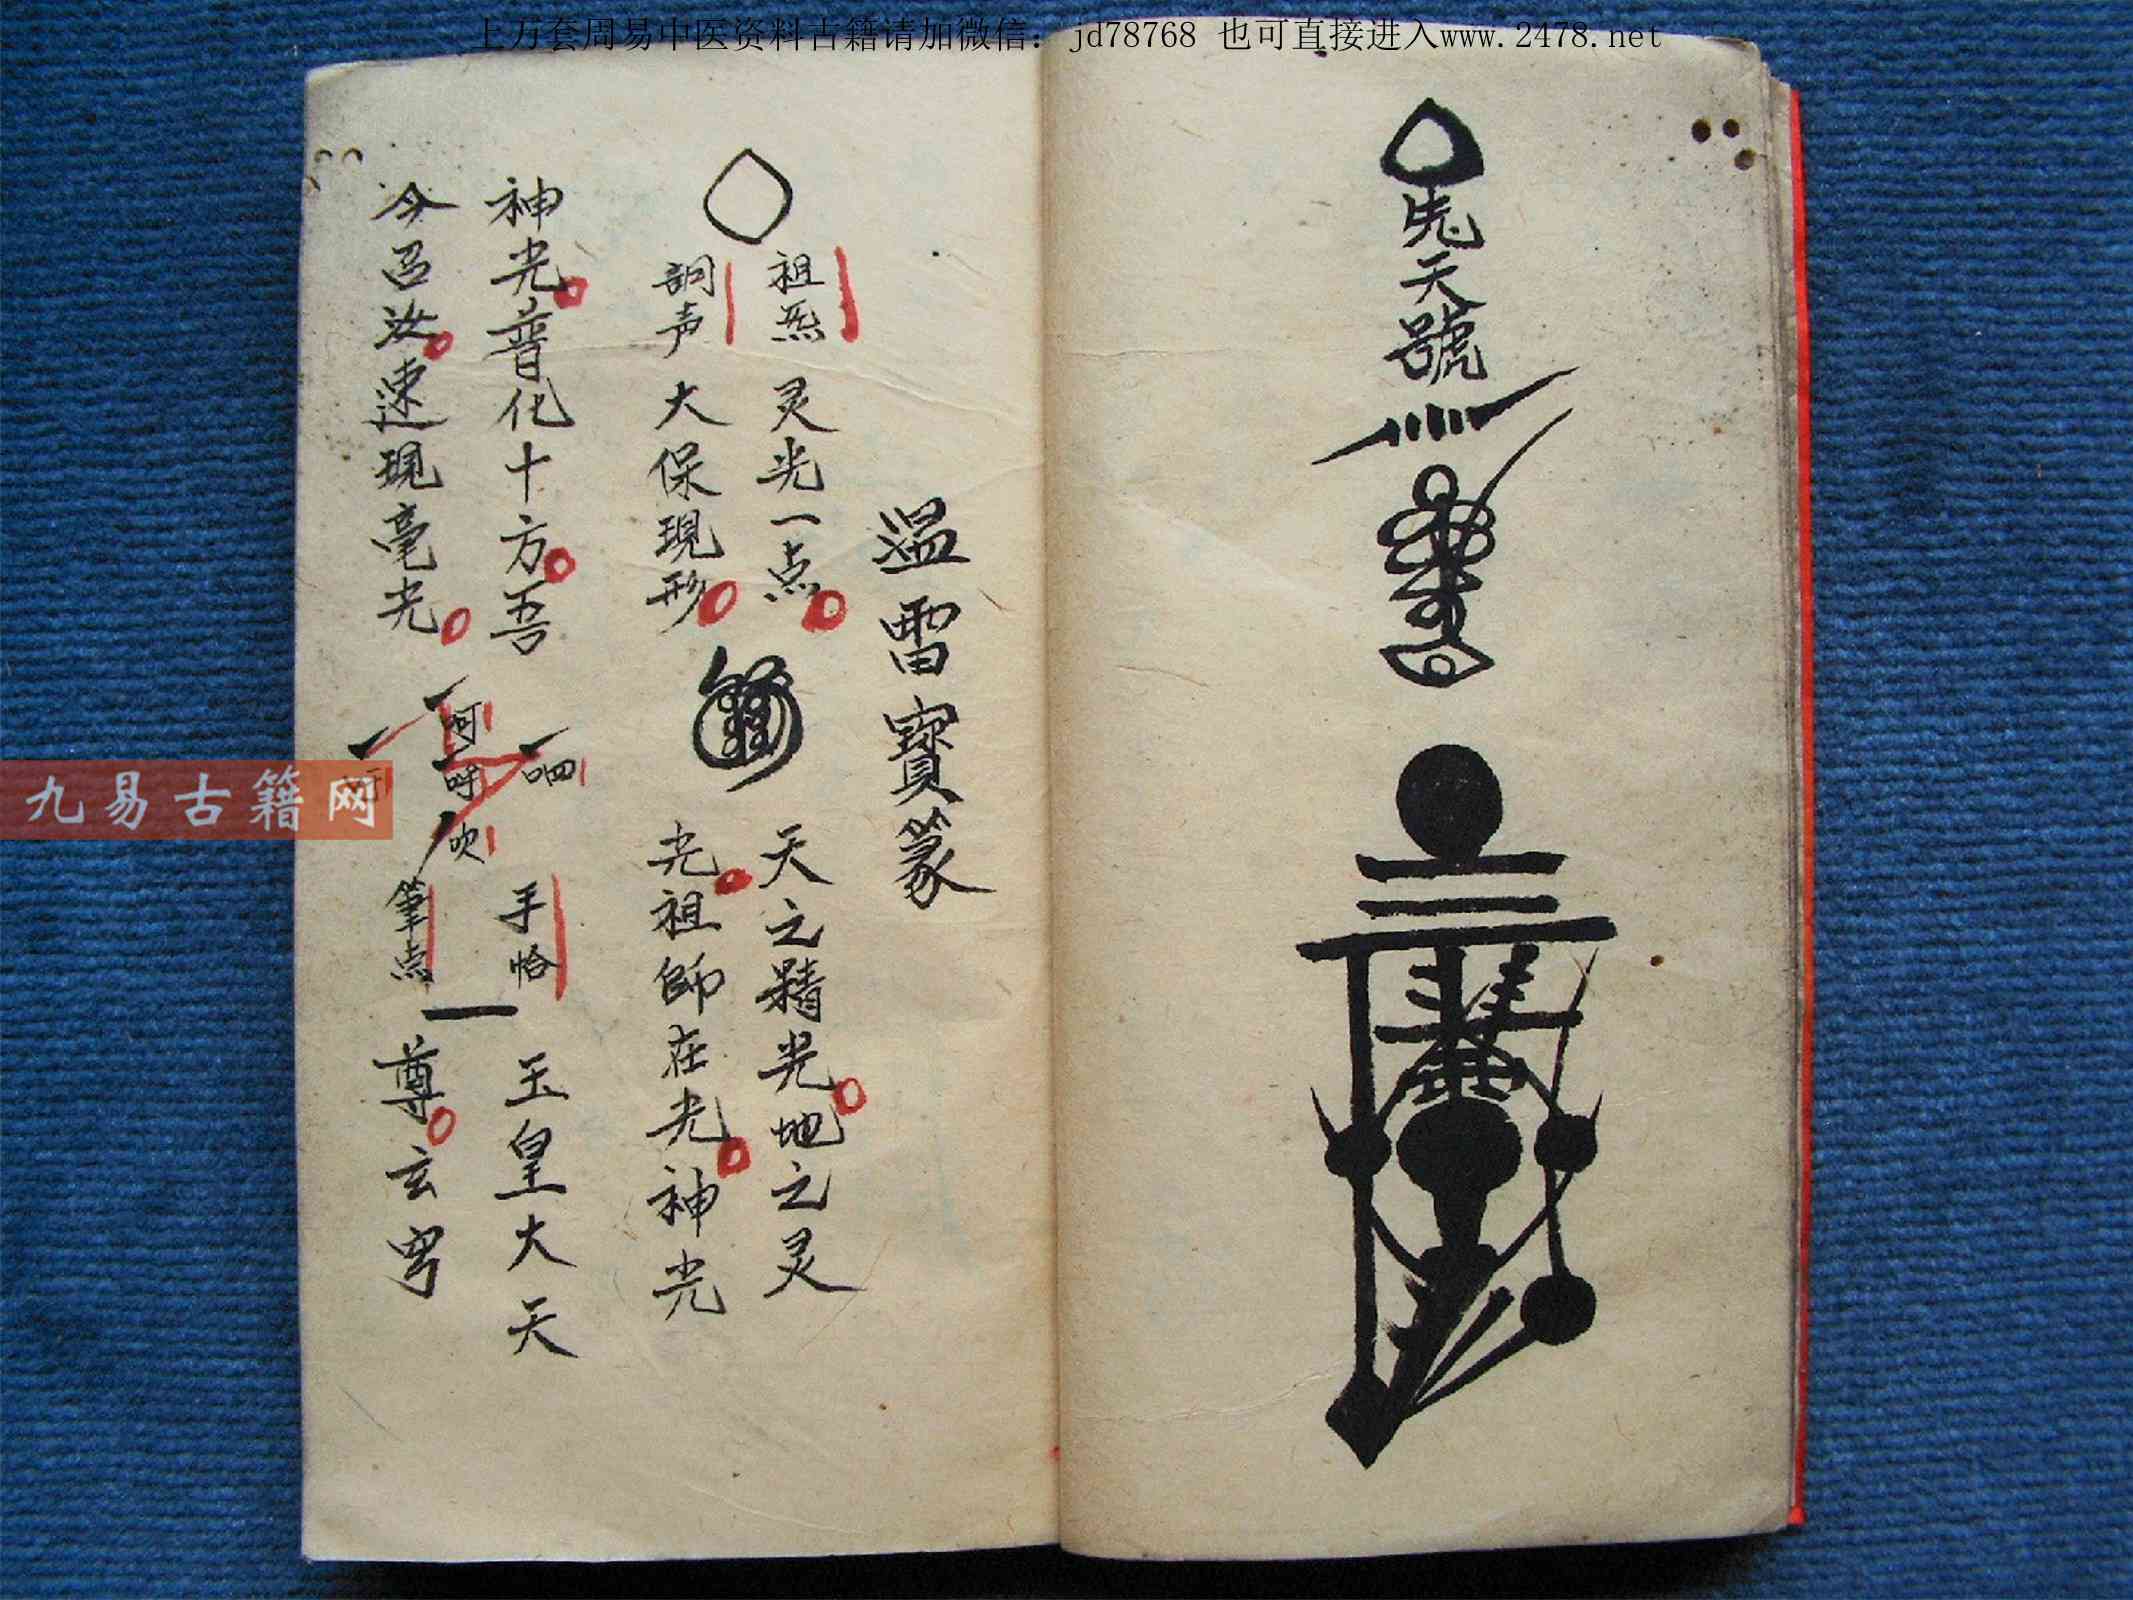 上万套周易中医资料古籍请加微信： jd78768 也可直接进入www.2478.net
先天號
溫雷寳篆
祖炁 灵光一点 天之精光地之灵
大保現形 光祖師在光神光
神光普化十方吾
呬
手恰
玉皇大天
今召汝速現毫光
呵
呼
吹
筆点
尊玄穹
九易古籍网